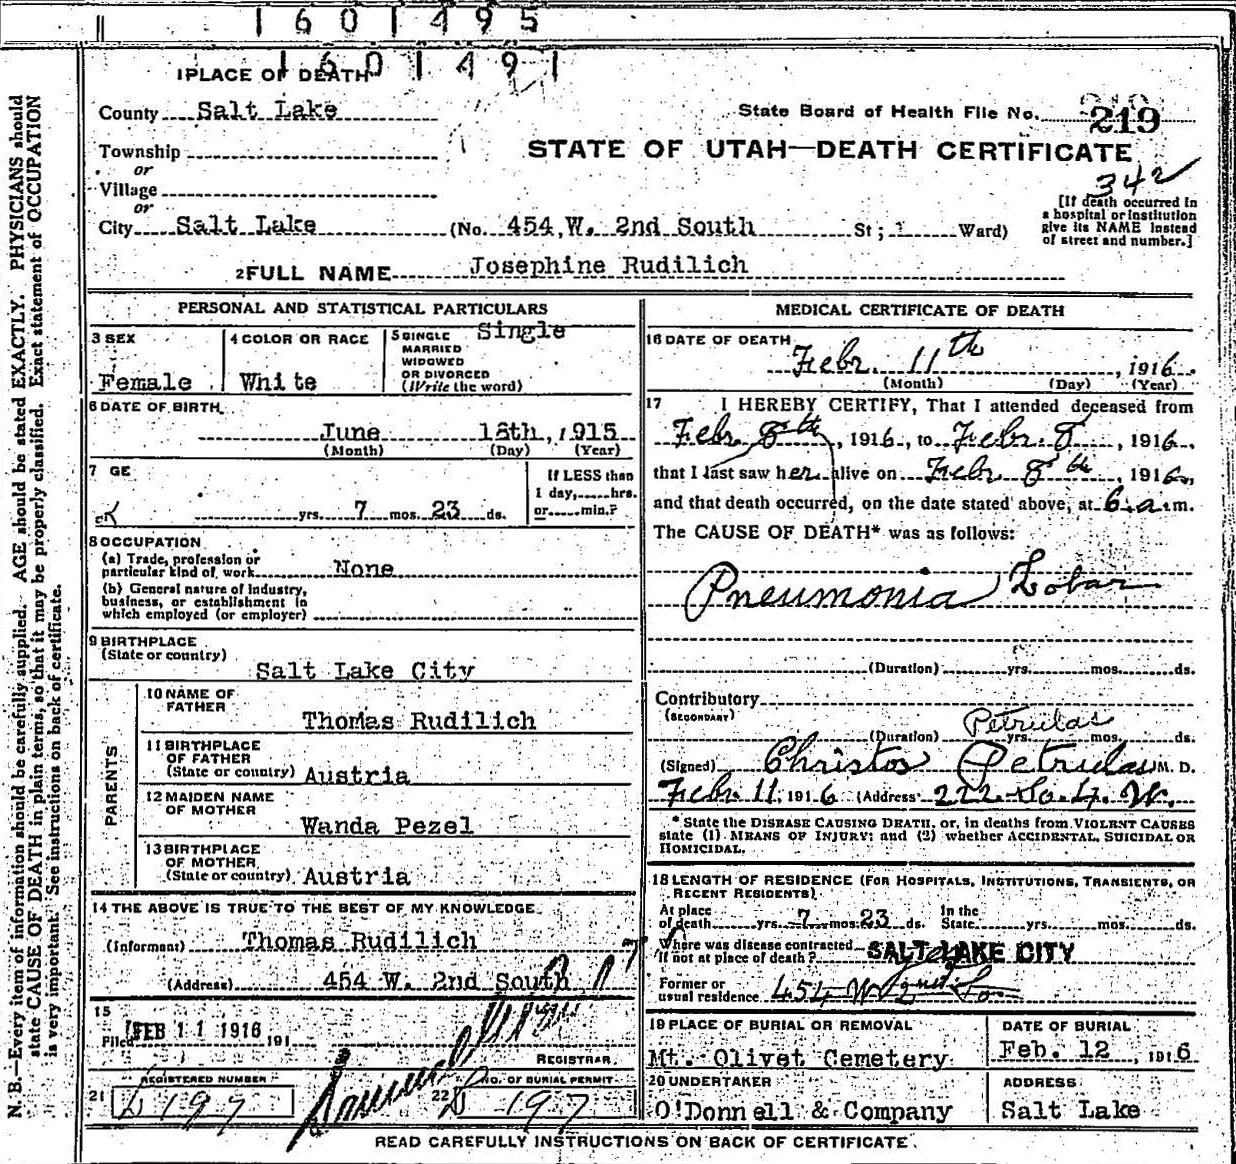 1601495
1601491
1 PLACE OF DEATH
County Salt Lake
State Board of Health File No. 219
Township
or
Village
or
STATE OF UTAH—DEATH CERTIFICATE
342
[If death occurred in
a hospital or institution
give its NAME instead
of street and number.]
City Salt Lake (No. 454 W. 2nd South St; Ward)
2 FULL NAME Josephine Rudilich
PERSONAL AND STATISTICAL PARTICULARS
3 SEX
Female
4 COLOR OR RACE
White
5 SINGLE
MARRIED
WIDOWED
OR DIVORCED
(Write the word)
Single
6 DATE OF BIRTH
June 18th, 1915
(Month) (Day) (Year)
7 GE
yrs. 7 mos. 23 ds.
If LESS than
1 day, hrs.
or min.?
8 OCCUPATION
(a) Trade, profession or
particular kind of work None
(b) General nature of industry,
business, or establishment in
which employed (or employer)
9 BIRTHPLACE
(State or country)
Salt Lake City
PARENTS
10 NAME OF
FATHER
Thomas Rudilich
11 BIRTHPLACE
OF FATHER
(State or country) Austria
12 MAIDEN NAME
OF MOTHER
Wanda Pezel
13 BIRTHPLACE
OF MOTHER
(State or country) Austria
14 THE ABOVE IS TRUE TO THE BEST OF MY KNOWLEDGE
(Informant) Thomas Rudilich
(Address) 454 W. 2nd South
15
Filed FEB 11 1916 191
REGISTRAR
21 REGISTERED NUMBER
L 197
22 NO. OF BURIAL PERMIT
197
MEDICAL CERTIFICATE OF DEATH
16 DATE OF DEATH
Febr. 11th, 1916.
(Month) (Day) (Year)
17 I HEREBY CERTIFY, That I attended deceased from
Febr 8th, 1916, to Febr. 8, 1916,
that I last saw her alive on Febr 8th, 1916,
and that death occurred, on the date stated above, at 6 a.m.
The CAUSE OF DEATH* was as follows:
Pneumonia Lobar
(Duration) yrs. mos. ds.
Contributory
(SECONDARY)
Petrulas
(Duration) yrs. mos. ds.
(Signed) Christos Petrulas M. D.
Febr. 11, 1916 (Address) 222 So. 4. W.
* State the DISEASE CAUSING DEATH, or, in deaths from VIOLENT CAUSES
state (1) MEANS OF INJURY; and (2) whether ACCIDENTAL, SUICIDAL OR
HOMICIDAL.
18 LENGTH OF RESIDENCE (FOR HOSPITALS, INSTITUTIONS, TRANSIENTS, OR
RECENT RESIDENTS)
At place
of death yrs. 7 mos. 23 ds. In the
State yrs. mos. ds.
Where was disease contracted
if not at place of death? SALT LAKE CITY
Former or
usual residence 454 W 2nd So
19 PLACE OF BURIAL OR REMOVAL
Mt. Olivet Cemetery
DATE OF BURIAL
Feb. 12, 1916
20 UNDERTAKER
O'Donnell & Company
ADDRESS
Salt Lake
READ CAREFULLY INSTRUCTIONS ON BACK OF CERTIFICATE.
N. B.—Every item of information should be carefully supplied. AGE should be stated EXACTLY. PHYSICIANS should
state CAUSE OF DEATH in plain terms, so that it may be properly classified. Exact statement of OCCUPATION
is very important. See instructions on back of certificate.